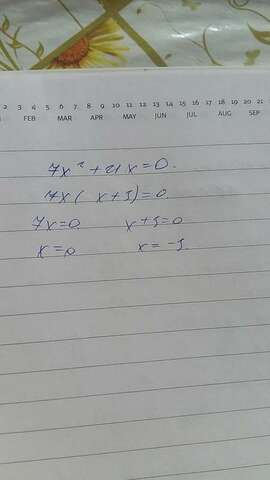 2 3 4 5 6 7 8 9 10 11 12 13 14 15 16 17 18 19 20 21
FEB MAR APR MAY JUN JUL AUG SEP
7x² + 21x = 0.
7x( x+3)=0
7x=0 x+3=0
x=0 x= -3.